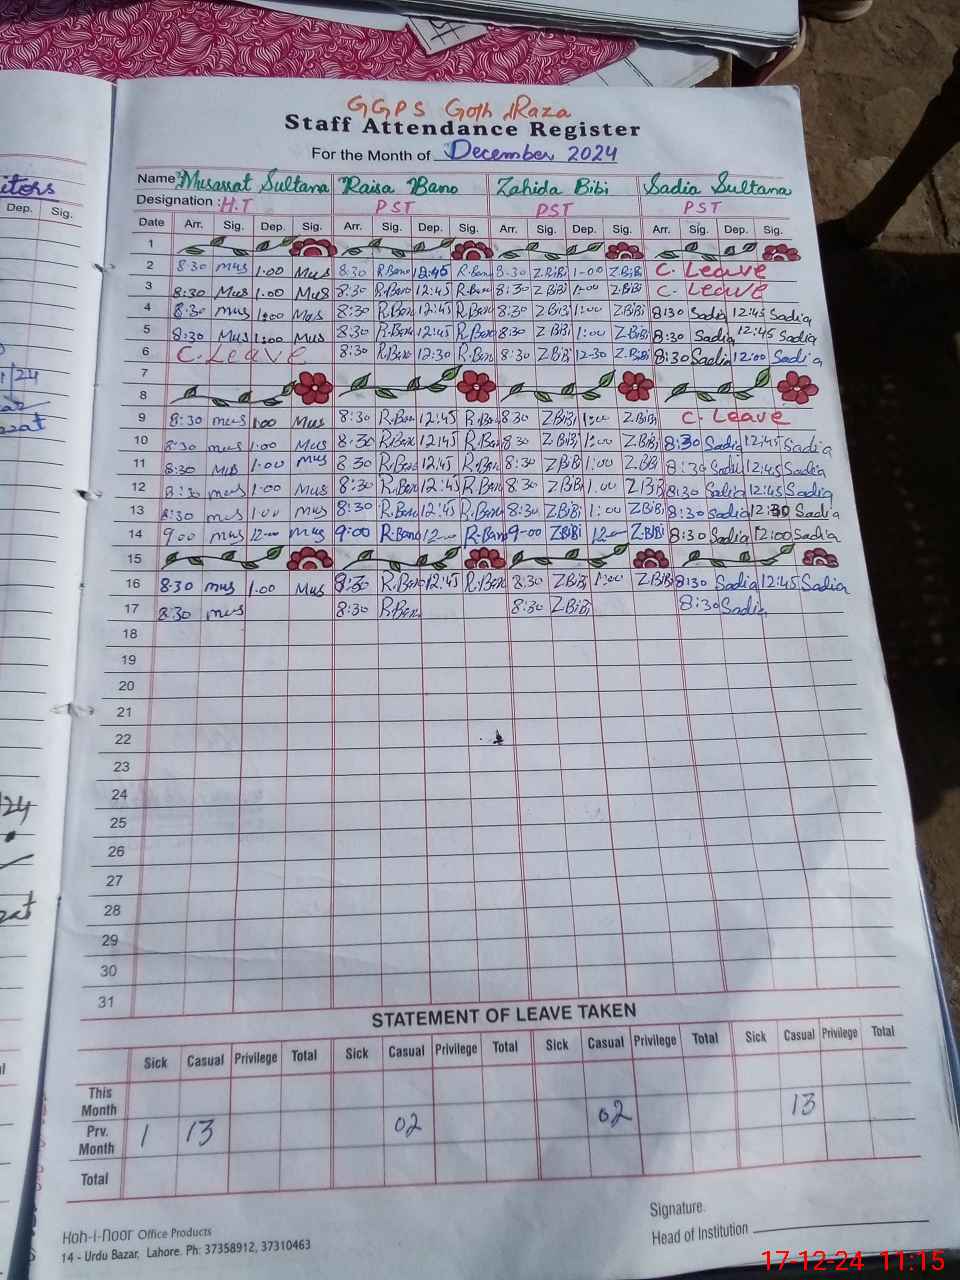 GGPS Goth Raza
Staff Attendance Register
For the Month of December 2024
itors
Dep. Sig.
Name: Musassat Sultana Raisa Bano Zahida Bibi Sadia Sultana
Designation : H.T PST PST PST
Date Arr. Sig. Dep. Sig. Arr. Sig. Dep. Sig. Arr. Sig. Dep. Sig. Arr. Sig. Dep. Sig.
1
2 8:30 mus 1.00 Mus 8:30 R.Bano 12:45 R.Bano 8:30 Z.BiBi 1-00 Z.BiBi C. Leave
3 8:30 Mus 1.00 Mus 8:30 R.Bano 12:45 R.Bano 8:30 Z BiBi 1:00 Z.BiBi C. Leave
4 8:30 mus 1:00 Mus 8:30 R.Bano 12:45 R.Bano 8:30 Z BiBi 1:00 Z BiBi 8:30 Sadia 12:45 Sadia
5 8:30 Mus 1:00 Mus 8:30 R.Bano 12:45 R.Bano 8:30 Z BiBi 1:00 Z BiBi 8:30 Sadia 12:45 Sadia
6 C. Leave 8:30 R.Bano 12:30 R.Bano 8:30 Z BiBi 12-30 Z.BiBi 8:30 Sadia 12:00 Sadia
7
8
9 8:30 mus 1:00 Mus 8:30 R.Bano 12:45 R.Bano 8:30 Z BiBi 1:00 Z.BiBi C. Leave
10 8:30 mus 1:00 Mus 8:30 R.Bano 12:45 R.Bano 8:30 Z BiBi 1:00 Z.BiBi 8:30 Sadia 12:45 Sadia
11 8:30 Mus 1.00 mus 8:30 R.Bano 12:45 R.Bano 8:30 Z BiBi 1:00 Z.BiBi 8:30 Sadia 12:45 Sadia
12 8:30 mus 1.00 Mus 8:30 R.Bano 12:45 R.Bano 8:30 Z.BiBi 1.00 Z BiBi 8:30 Sadia 12:45 Sadia
13 8:30 mus 1.00 mus 8:30 R.Bano 12:45 R.Bano 8:30 Z.BiBi 1:00 Z BiBi 8:30 Sadia 12:30 Sadia
14 9:00 mus 12-00 mus 9:00 R.Bano 12-00 R.Bano 9-00 Z.BiBi 12-00 Z.BiBi 8:30 Sadia 12:00 Sadia
15
16 8:30 mus 1.00 Mus 8:30 R.Bano 12:45 R.Bano 8:30 Z BiBi 1:00 Z BiBi 8:30 Sadia 12:45 Sadia
17 8:30 mus 8:30 R.Bano 8:30 Z.BiBi 8:30 Sadia
18
19
20
21
22
23
24
25
26
27
28
29
30
31
STATEMENT OF LEAVE TAKEN
Sick Casual Privilege Total Sick Casual Privilege Total Sick Casual Privilege Total Sick Casual Privilege Total
This Month
Prv. Month 1 13 02 02 13
Total
Koh-i-Noor Office Products
14 - Urdu Bazar, Lahore. Ph: 37358912, 37310463
Signature.
Head of Institution
17-12-24 11:15